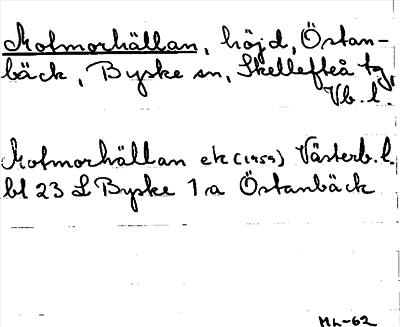 Motmorhällan, höjd, Östan-
bäck, Byske sn, Skellefteå tg,
Vb. l.
Motmorhällan ek (1959) Västerb. l.
bl 23 L Byske 1 a Östanbäck
ML-62